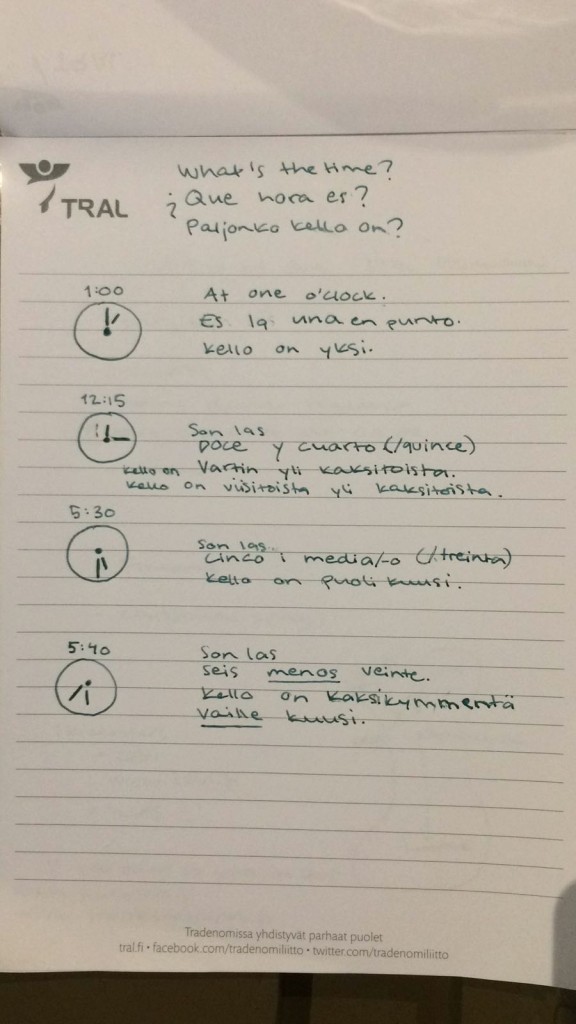 TRAL
What's the time?
¿Que hora es?
Paljonko kello on?
1:00
At one o'clock.
Es la una en punto.
Kello on yksi.
12:15
Son las
Doce y cuarto (/quince)
Kello on Vartin yli kaksitoista.
Kello on viisitoista yli kaksitoista.
5:30
Son las
cinco i media/-o (/treinta)
Kello on puoli kuusi.
5:40
Son las
seis menos veinte.
Kello on kaksikymmentä
vaille kuusi.
Tradenomissa yhdistyvät parhaat puolet
tral.fi • facebook.com/tradenomiliitto • twitter.com/tradenomiliitto